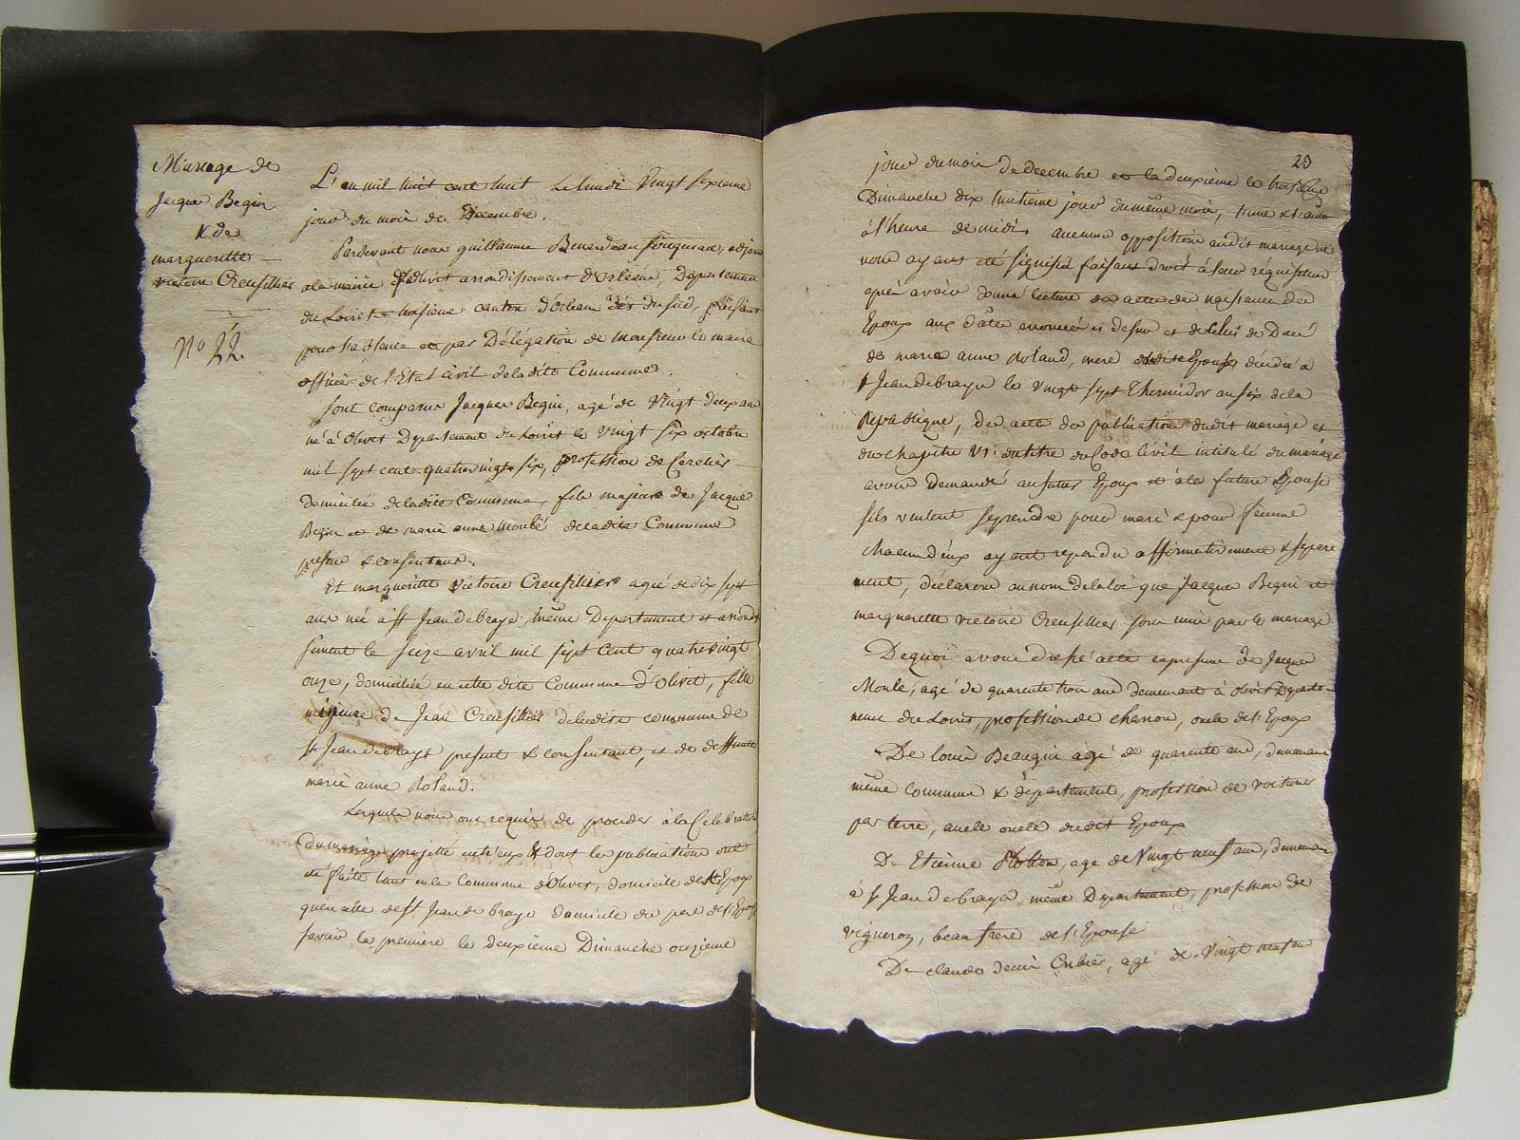 Mariage de
Jacques Begin
& de
margueritte
victoire Creusillier
N° 22.
L'an mil huit cent huit le lundi Vingt sixieme
jour du mois de Decembre.
Pardevant nous guillaume adjoint
a la mairie d'olivet arrondissement d'Orleans, Departement
du Loiret troisieme canton d'Orleans du sud, faisant
pour l'absence et par Délégation de monsieur le maire
officier de l'Etat civil de la dite Commune.
sont comparus Jacques Begin, agé de Vingt deux ans
né a olivet Departement du Loiret le Vingt six octobre
mil sept cent quatrevingt six, profession de
domicilié de la dite Commune, fils majeur de Jacques
Begin et de marie anne Monlé de la dite Commune
present & consentant.
Et marguerite victoire Creusillier agée de dix sept
ans née a St Jean de braye, même Departement et arrondi
ssement le seize avril mil sept cent quatrevingt
onze, domiciliée en cette dite Commune d'Olivet, fille
mineure de Jean Creusillier de la dite commune de
St Jean de Braye present & consentant, et de deffunte
marie anne Roland.
Lesquels nous ont requis de proceder à la Celebration
du mariage projetté entr'eux & dont les publications ont
été faites tant en la Commune d'Olivet, domicile de l'Epoux
qu'en celle de St Jean de braye domicile du pere de l'Epouse
savoir la premiere le deuxieme Dimanche onzieme
23
jour du mois de decembre et la deuxième le troisieme
Dimanche dix huitieme jour du même mois,
à l'heure de midi, aucunne opposition audit mariage ne
nous ayant été signifiée faisant droit à leur réquisition
après avoir donné lecture des actes de naissance des
Epoux aux dates enoncées ci dessus et de celui de Décés
de marie anne Roland, mere de ladite Epouse decedée a
St Jean de braye le vingt sept Thermidor an six de la
Republique, des actes de publications dudit mariage et
du chapitre VI. du titre du Code Civil intitulé du mariage
avons Demandé au futur Epoux et à la future Epouse
s'ils veulent se prendre pour mari & pour femme
chacun d'eux ayant repondu affirmativement & separé
ment, déclarons au nom de la loi que Jacques Begin et
marguerite victoire Creusillier sont unis par le mariage
De quoi avons dressé acte en presence de Jacques
Monlé, agé de quarente trois ans demeurant à olivet Departe-
ment du Loiret, profession de charon, oncle de l'Epoux
De louis Beaugin agé de quarente ans, demeurant
même Commune & departement, profession de voiturier
par terre, aussi oncle dudit Epoux
De Etienne, agé de Vingt neuf ans, demeurant
à St Jean de braye, même Departement, profession de
vigneron, beau frere de l'Epouse
De claude denis, agé de Vingt neuf